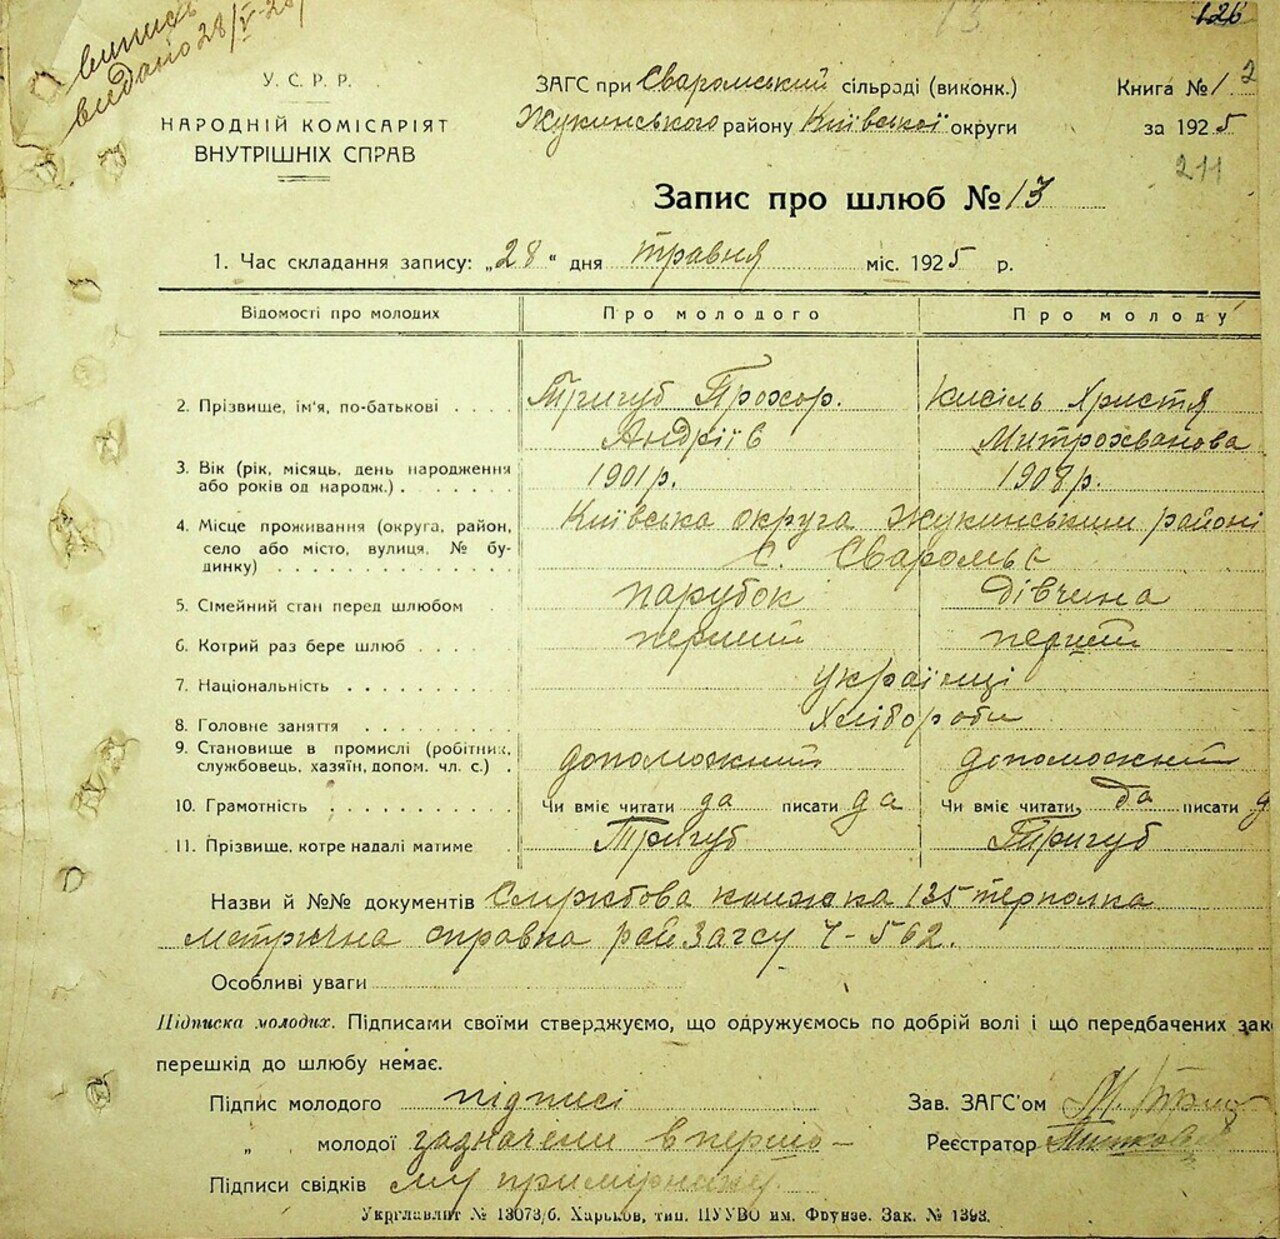 126
випись
видано 28/V-
У.С.Р.Р.
НАРОДНІЙ КОМІСАРІЯТ
ВНУТРІШНІХ СПРАВ
ЗАГС при Сваромський сільраді (виконк.)
Жукинського району Київської округи
Книга № 1. 2
за 1925
211
Запис про шлюб № 13
1. Час складання запису: „28“ дня травня міс. 1925 р.
Відомості про молодих Про молодого Про молоду
2. Прізвище, ім'я, по-батькові . . . . Тригуб Прохор. Кисіль Христя
Андріїв Митрохванова
3. Вік (рік, місяць, день народження 1901 р. 1908 р.
або років од народж.) . . . . . . .
4. Місце проживання (округа, район, Київська округа Жукинським районі
село або місто, вулиця, № бу- с. Сваромьє
динку) . . . . . . . . . . . . . .
5. Сімейний стан перед шлюбом . парубок дівчина
6. Котрий раз бере шлюб . . . . перший перший
7. Національність . . . . . . . . українці
8. Головне заняття . . . . . . . . Хлібороби
9. Становище в промислі (робітник, допоможний допоможний
службовець, хазяїн, допом. чл. с.) .
10. Грамотність . . . . . . . . . . Чи вміє читати да писати да Чи вміє читати, да писати д
11. Прізвище, котре надалі матиме . Тригуб Тригуб
Назви й №№ документів Службова книжка 135 терполка
метрична справка райЗагсу Ч-562.
Особливі уваги
Підписка молодих. Підписами своїми стверджуємо, що одружуємось по добрій волі і що передбачених зак
перешкід до шлюбу немає.
Підпис молодого підписі Зав. ЗАГС'ом
„ молодої зазначени в першо- Реєстратор
Підписи свідків му примірнику
Укрглавліт № 13073/б. Харьков, тип. ЦУУВО им. Фрунзе. Зак. № 1393.